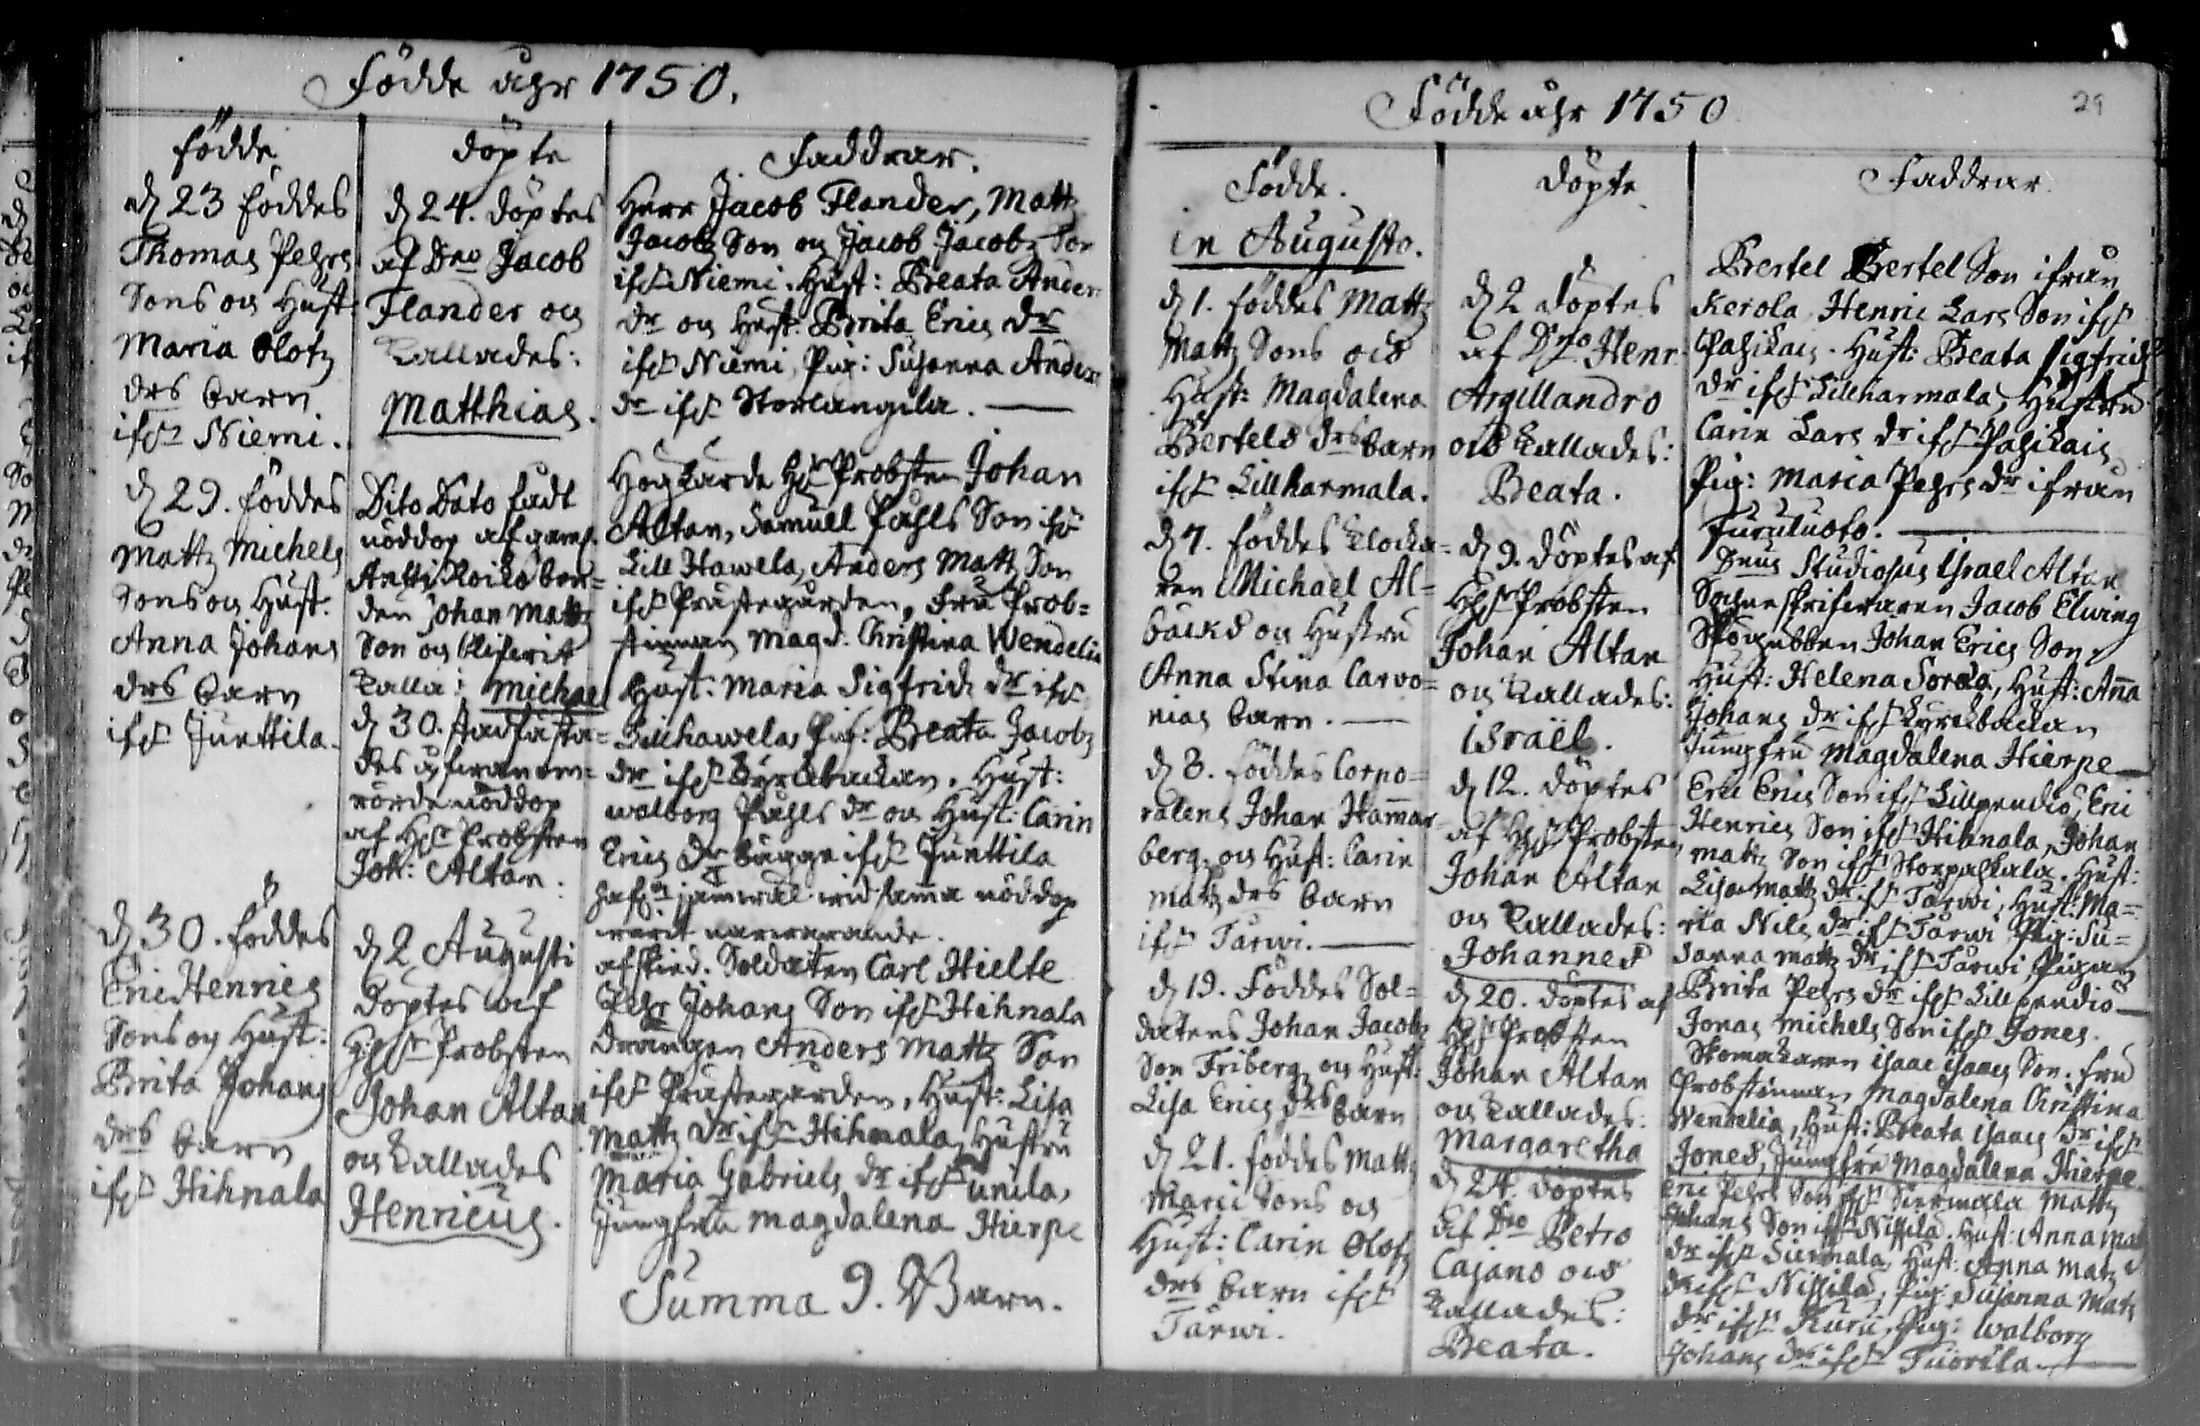 Födde åhr 1750.
födde
d 23 föddes
Thomas Pehrs
Sons och Hust:
Maria Olofz
drs barn
ifr Niemi.
d 29. föddes
Mattz Michels
Sons och Hust:
Anna Johans
drs barn
ifr Junttila.
d 30. föddes
Eric Henrics
Sons och Hust:
Brita Johans
drs barn
ifr Hihnala
döpte
d 24. döptes
af Dno Jacob
Flander och
kallades:
Matthias.
Dito Dato fådt
nöddop af gaml.
Antti
den Johan Mattz
Son och blifvit
kalla: Michael
d 30. stadfästa=
des ofvanom=
rörde nöddop
af Hr Probsten
Joh: Altan.
d 2 Augusti
döptes af
Hr Probsten
Johan Altan
och kallades
Henricus.
Faddrar.
Herr Jacob Flander, Mattz
Jacobz Son och Jacob Jacobz Son
ifr Niemi. Hust: Beata Anders
dr och Hust: Brita Erics dr
ifr Niemi, Pig: Susanna Anders
dr ifr Storlangila.
Höglärde Hr Probsten Johan
Altan, Samuell Påhls Son ifr
Lill Hawela, Anders Mattz Son
ifr Prästegården, Fru Prob=
stinnan Magd. Christina Wendelia
Hust: Maria Sigfrids dr ifr
Lillhawela, Pig: Beata Jacobz
dr ifr Kyrckbackan. Hust:
Walborg Påhls dr och Hust: Carin
Erics dr bägge ifr Junttila
hafva jämwäl wid samma nöddop
warit närwarande.
afskied. Soldaten Carl Hielte
Pehr Johans Son ifr Hihnala
Drängen Anders Mattz Son
ifr Prästegården, Hust: Lisa
Mattz dr ifr Hihnala, Hustru
Maria Gabriels dr ifr unila,
Jungfru Magdalena Hierpe
Summa 9. Barn.
Födde åhr 1750
29
Födde.
in Augusto.
d 1. föddes Mattz
Mattz Sons och
Hust: Magdalena
Bertels drs barn
ifr Lillkarmala.
d 7. föddes klocka=
ren Michael Al=
bäcks och Hustru
Anna Stina Carvo=
nias barn.
d 8. föddes Corpo=
ralens Johan Hammar
berg, och Hust: Carin
Mattz drs barn
ifr Tarwi.
d 19. Föddes Sol=
datens Johan Jacobz
Son Friberg och Hust:
Lisa Erics drs barn
d 21. föddes Mattz
Marci Sons och
Hust: Carin Olofz
drs barn ifr
Tarwi.
döpte
d 2 döptes
af Dno Henr.
Argillandro
och kallades:
Beata.
d 9. döptes af
Hr Probsten
Johan Altan
och kallades:
Israël.
d 12. döptes
af Hr Probsten
Johan Altan
och kallades:
Johannes
d 20. döptes af
Hr Probsten
Johan Altan
och kallades:
Margaretha
d 24. döptes
af Dno Petro
Cajano och
kallades:
Beata.
Faddrar.
Bertel Bertel Son ifrån
Kerola, Henric Lars Son ifr
Pasikais. Hust: Beata Sigfrids
dr ifr Lillkarmala, Hustru
Carin Lars dr ifr Pasikais
Pig: Maria Pehrs dr ifrån
Furuluoto.
Dnus Studiosus Israel Altan
Sochneskrifvaren Jacob Elwing
Johan Erics Son
Hust: Helena Sorda, Hust: Anna
Johans dr ifr Kyrckbackan
Jungfru Magdalena Hierpe
Eric Erics Son ifr Lillpendio, Eric
Henrics Son ifr Hihnala, Johan
Mattz Son ifr Storpaskala. Hust:
Lisa Mattz dr ifr Tarwi, Hust: Ma=
ria Nils dr ifr Tarwi Pig: Su=
sanna Mattz dr ifr Tarwi, Pigan
Brita Pehrs dr ifr Lillpendio
Jonas Michels Son ifr Jones.
Skomakaren Isaac Isaacs Son. Fru
Probstinnan Magdalena Christina
Wendelia, Hust: Beata Isaacs dr ifr
Jones, Jungfru Magdalena Hierpe.
Eric Pehrs Son ifr Siermala Mattz
Johans Son ifr Nissila. Hust: Anna Mattz
dr ifr Siermala, Hust: Anna Mattz
dr ifr Nissila, Pig: Susanna Mattz
dr ifr Kuru, Pig: Walborg
Johans dr ifr Tuorila